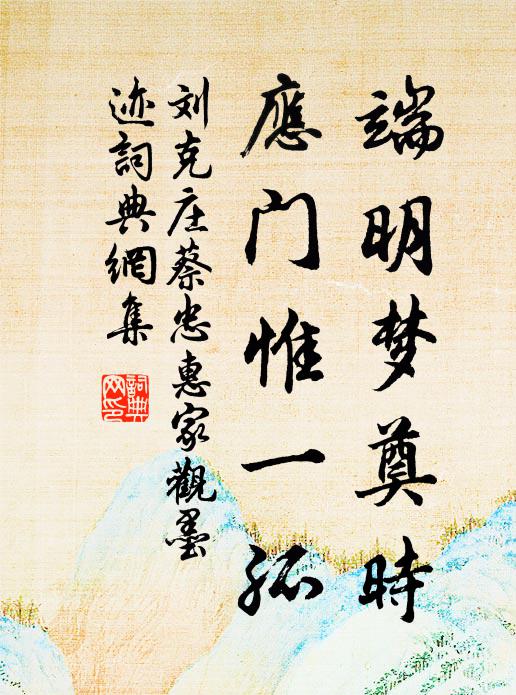 端明梦奠時
應门惟一孤
刘克庄蔡忠惠家觀墨
迹詞典網集
詞典
网印